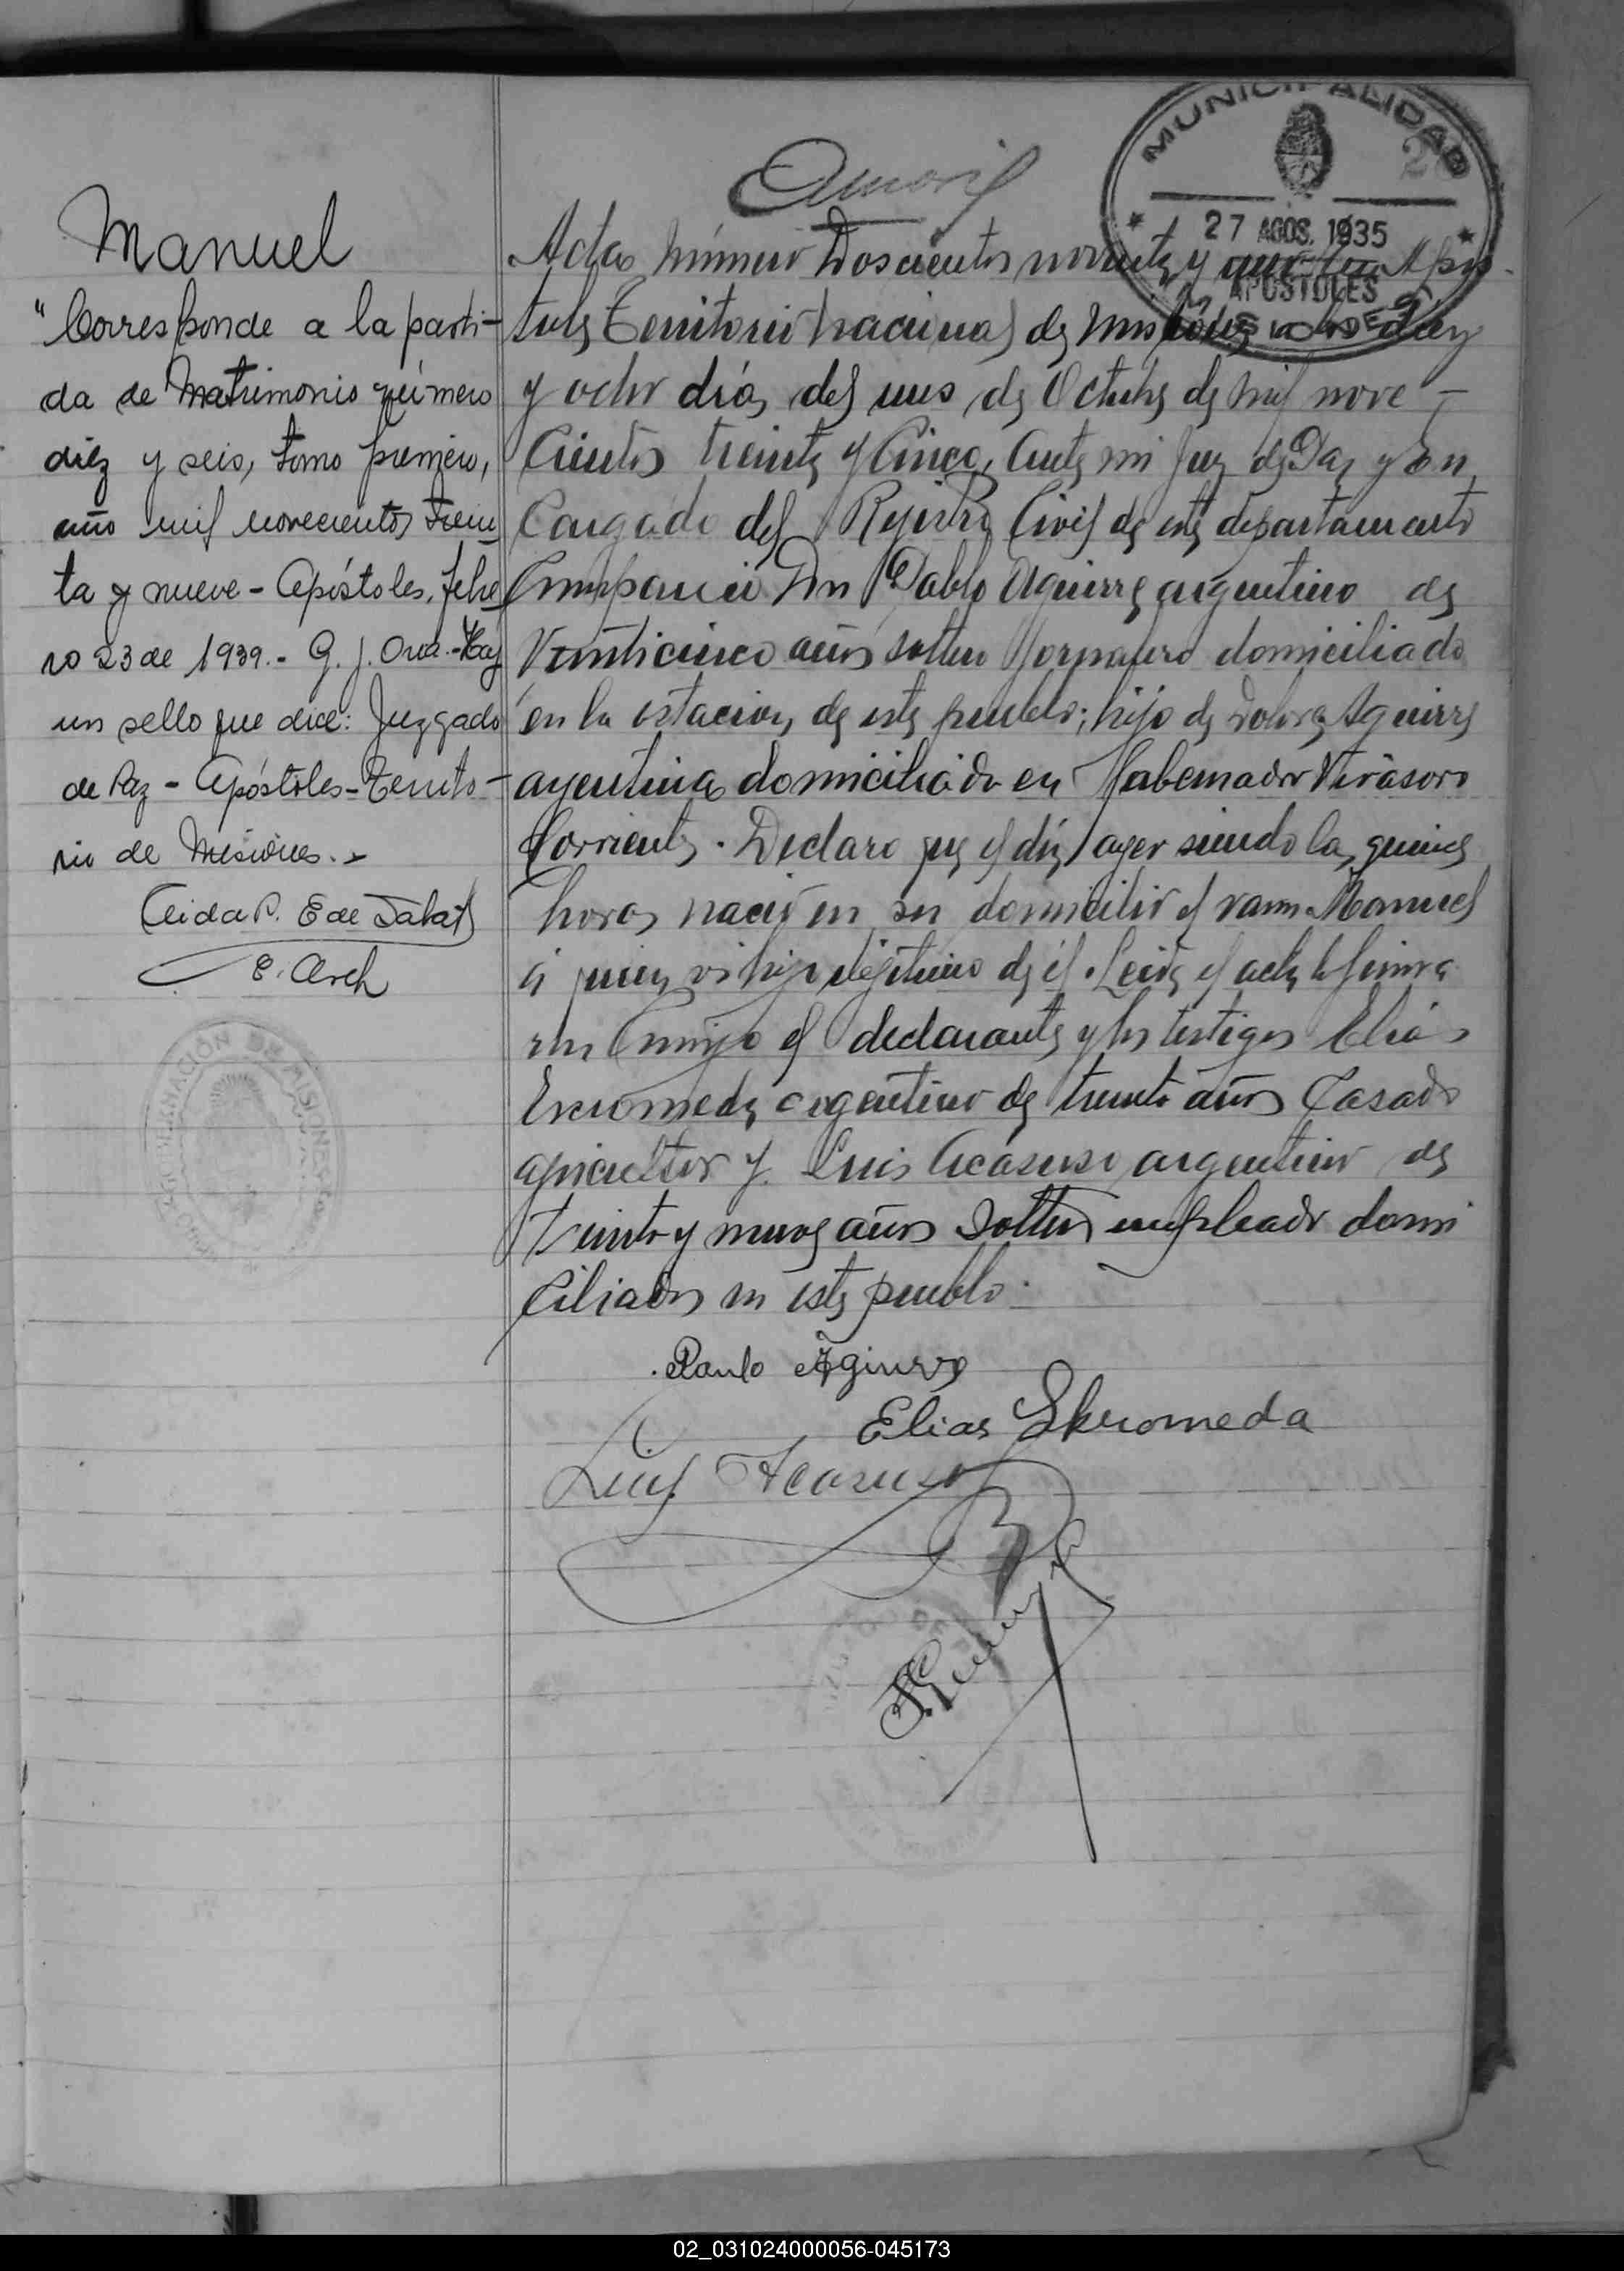 MUNICIPALIDAD
27 AGOS. 1935
APOSTOLES
MISIONES
Manuel
"Corresponde a la parti-
da de Matrimonio número
diez y seis, tomo primero,
año mil novecientos trein
ta y nueve - Apóstoles, febre
ro 23 de 1939.- G. J. - Hay
un sello que dice: Juzgado
de Paz - Apóstoles - Territo-
rio de Misiones.-
E. Arch
GOBERNACIÓN DE MISIONES
Acta número Doscientos noventa y Após
toles Territorio Nacional de Misiones a los diez
y ocho días del mes de Octubre de mil nove-
cientos treinta y Cinco, Ante mi Juez de Paz y En
Cargado del Rejistro Civil de este departamento
Compareció Don Pablo Aguirre argentino de
Veinticinco años soltero Jornalero domiciliado
en la estacion de este pueblo; hijo de Dolores Aguirre
argentina domiciliada en Gobernador Virasoro
Corrientes. Declaro que el día ayer siendo las quince
horas nació en su domicilio el varon Manuel
á quien vi hijo de él. Leida el acta la firma
ron Conmigo el declarante y los testigos Elias
argentino de treinta años Casado
agricultor y Luis Acasuso argentino de
treinta y nueve años Soltero empleado domi
ciliados en este pueblo.
Elias Skromeda
Luis Acasuso
02_031024000056-045173